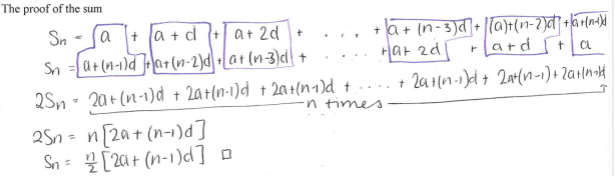 The proof of the sum
Sn = a + a + d + a + 2d + . . . + a + (n-3)d + (a)+(n-2)d + a+(n-1)d
Sn = a+(n-1)d + a+(n-2)d + a+(n-3)d + +a+ 2d + a+d + a
2Sn = 2a+(n-1)d + 2a+(n-1)d + 2a+(n-1)d + . . . . + 2a+(n-1)d + 2a+(n-1) + 2a+(n-1)d
n times
2Sn = n[2a+(n-1)d]
Sn = n/2 [2a+(n-1)d] □